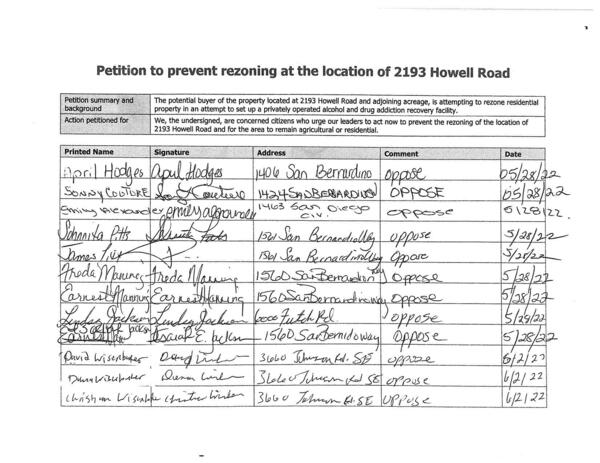 Petition to prevent rezoning at the location of 2193 Howell Road
Petition summary and background The potential buyer of the property located at 2193 Howell Road and adjoining acreage, is attempting to rezone residential
property in an attempt to set up a privately operated alcohol and drug addiction recovery facility.
Action petitioned for We, the undersigned, are concerned citizens who urge our leaders to act now to prevent the rezoning of the location of
2193 Howell Road and for the area to remain agricultural or residential.
Printed Name Signature Address Comment Date
April Hodges April Hodges 1406 San Bernardino oppose 05/28/22
SONNY COUTURE 1424 SAN BERNARDINO OPPOSE 05/28/22
Emily Alexander 1463 San Diego oppose 5/28/22
Johnnita Pitts 1501 San Bernardino Way oppose 5/28/22
James Pitts 1501 San Bernardino Way oppose 5/28/22
Freda Manning Freda Manning 1560 San Bernardino Way Oppose 5/28/22
Earnest Manning Earnest Manning 1560 San Bernardino Way Oppose 5/28/22
Lindsay Jackson Lindsay Jackson 6000 Futch Rd. oppose 5/29/22
Jackson E. Jackson 1560 San Bernidoway Oppose 5/28/22
David Wisenbaker 3660 Johnson Rd. SE oppose 6/2/22
Wisenbaker 3660 Johnson Rd SE oppose 6/2/22
Christian Wisenbaker 3660 Johnson Rd. SE Oppose 6/2/22